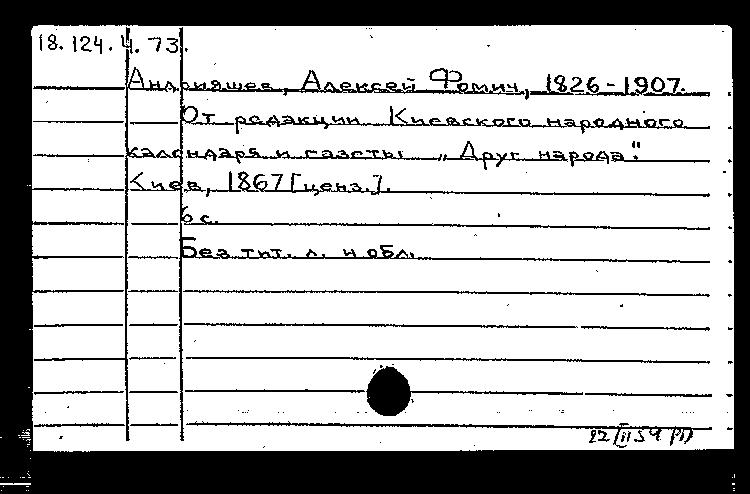 18.124.4.73.
Андрияшев, Алексей Фомич, 1826-1907.
От редакции Киевского народного
календаря и газеты „Друг народа".
Киев, 1867 [ценз.].
6 с.
Без тит. л. и обл.
22/II 59